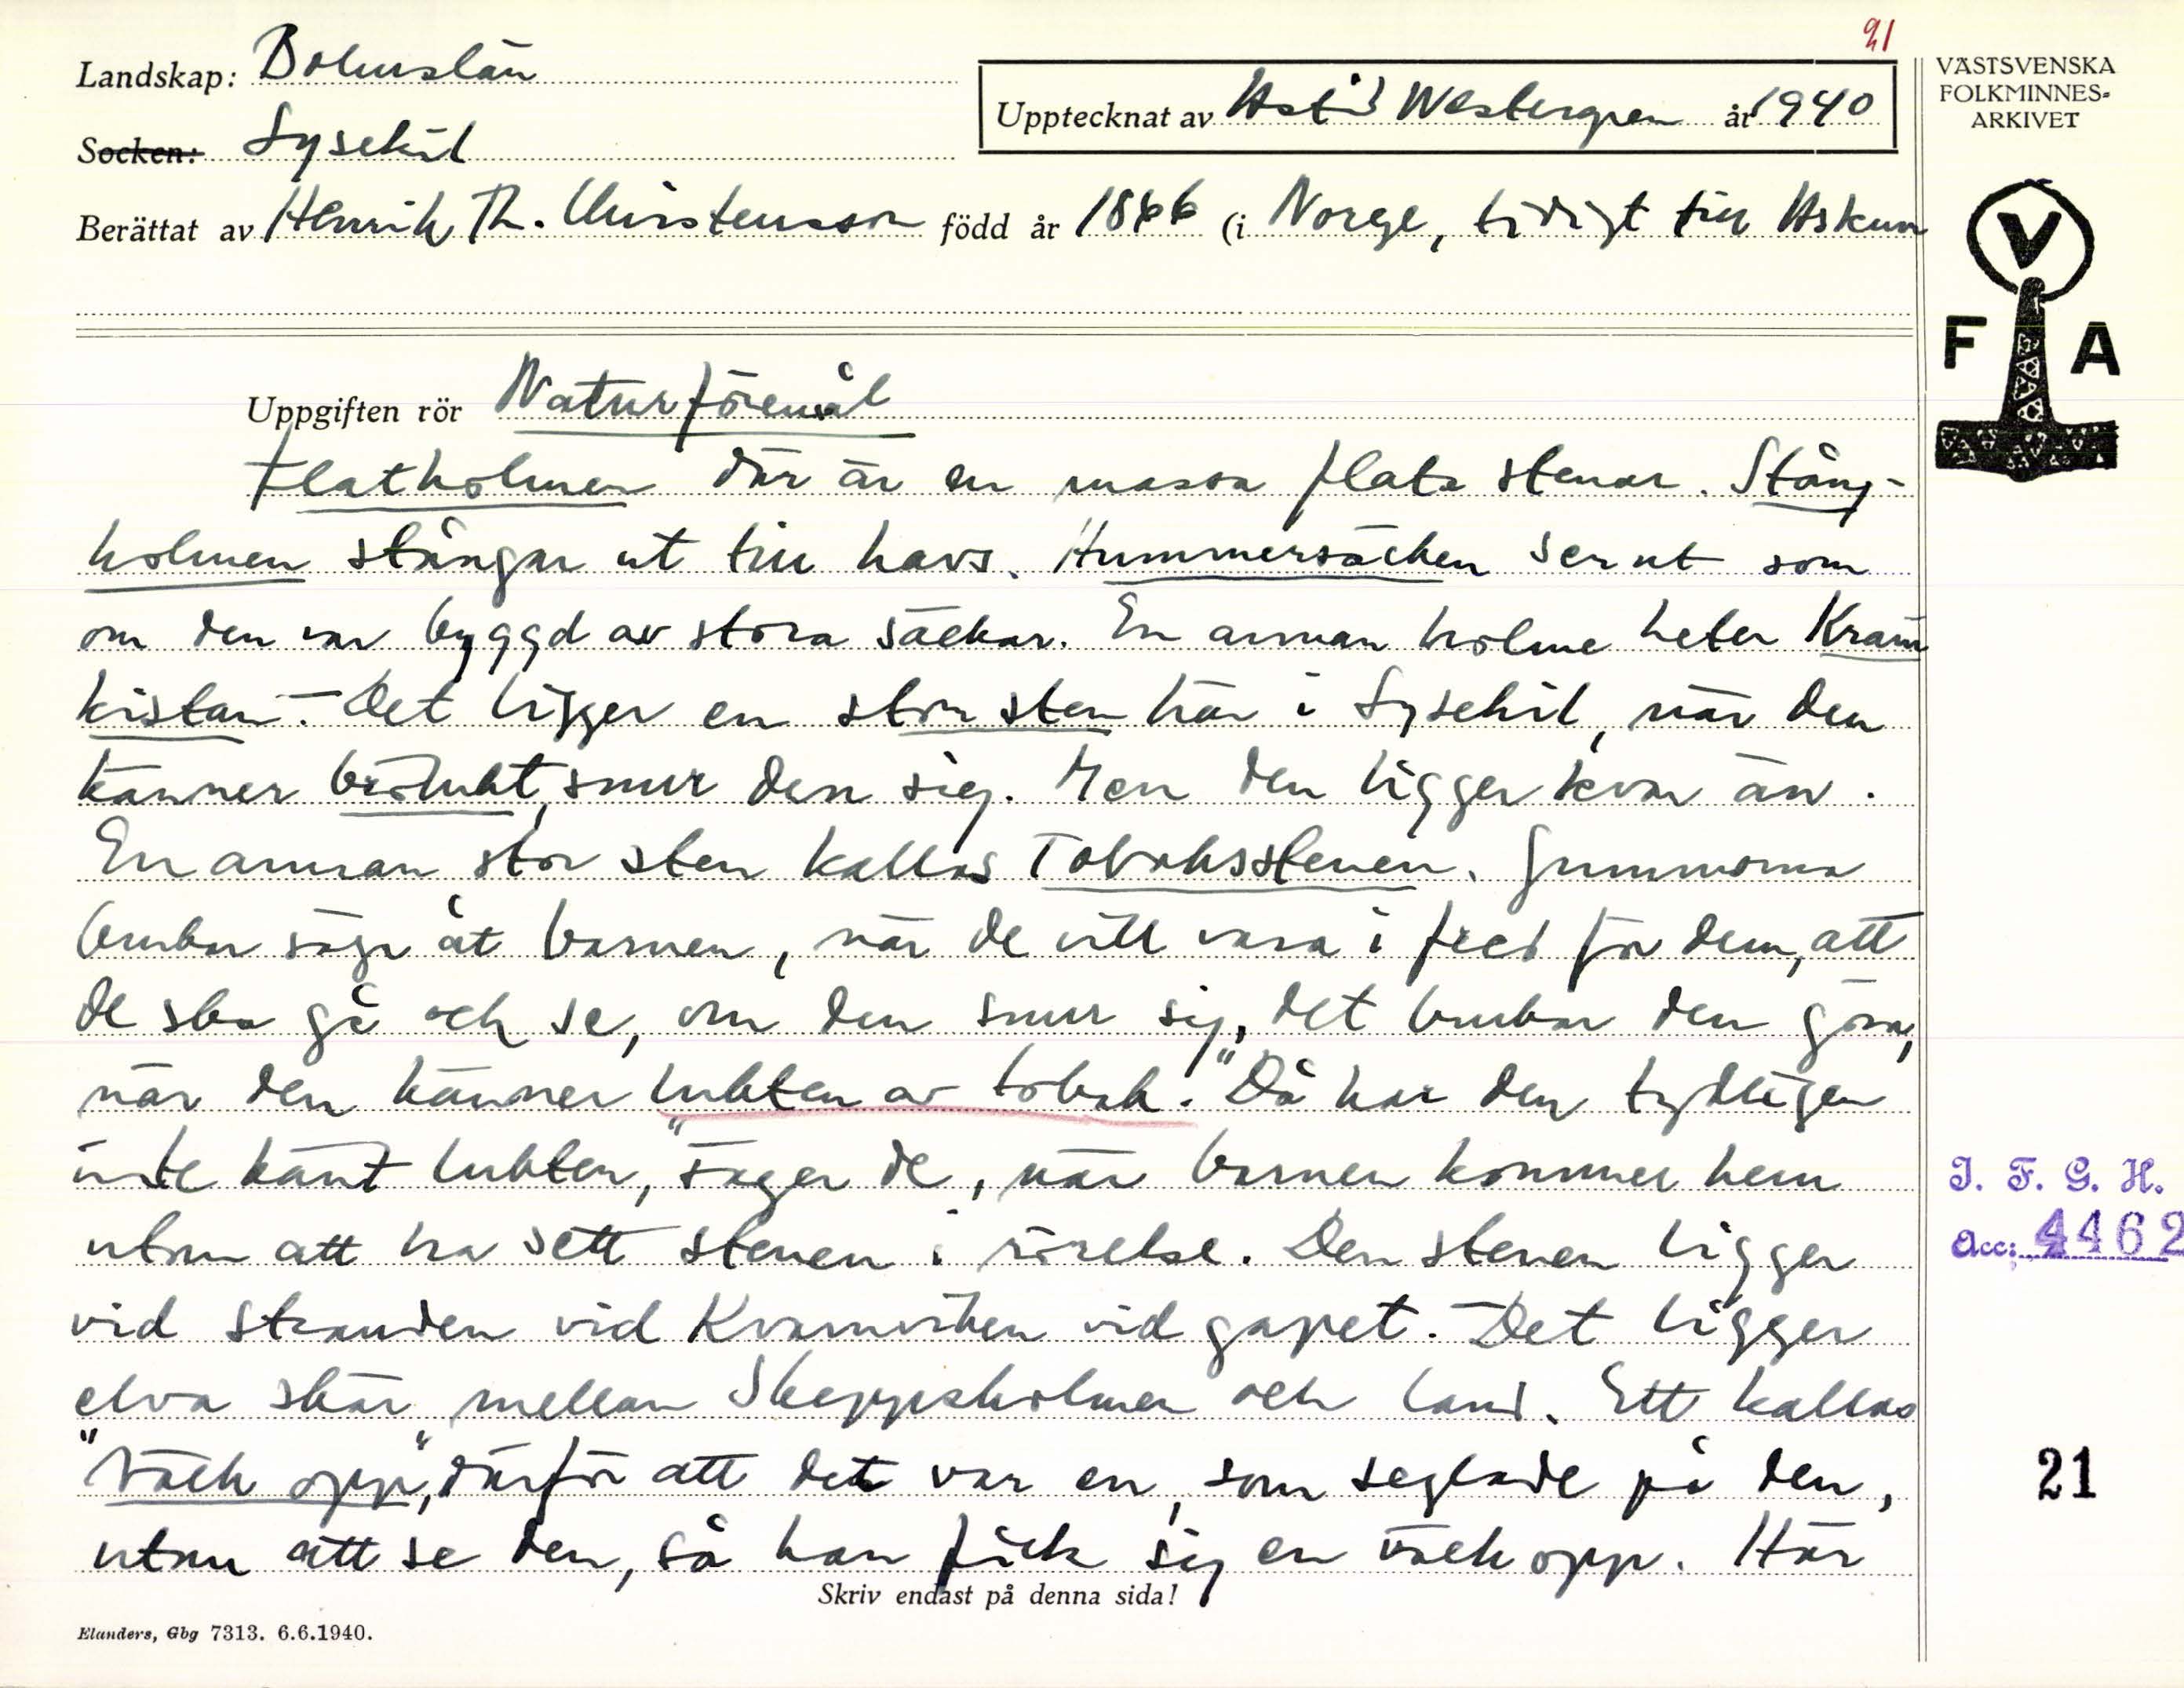 21
Landskap: Bohuslän
Upptecknat av Astrid Westergren år 1940
Socken: Lysekil
Berättat av Henrik Th. Christensson född år 1866 (i Norge, tidigt till Askum
VÄSTSVENSKA
FOLKMINNES-
ARKIVET
V
F A
Uppgiften rör Naturföremål
Flatholmen där är en massa flata stenar. Stång-
holmen stångar ut till havs. Hummersäcken ser ut som
om den var byggd av stora säckar. En annan holme heter Kram
kistan. – Det ligger en stor sten här i Lysekil, när den
känner brölukt, snur den sig. Men den ligger kvar än.
En annan stor sten kallas Tobaksstenen. Gummorna
brukar säga åt barnen, när de vill vara i fred för dem, att
de ska gå och se, om den snur sig, det brukar den göra,
när den känner lukten av tobak. "Då har den tydligen
inte känt lukten," säger de, när barnen kommer hem
utan att ha sett stenen i rörelse. Den stenen ligger
vid stranden vid Kvarnviken vid gapet. – Det ligger
elva skär mellan Skeppsholmen och land. Ett kallas
"Väck opp", därför att det var en, som seglade på den,
utan att se den, så han fick sig en väck opp. Här
Skriv endast på denna sida!
Elanders, Gbg 7313. 6.6.1940.
I. F. G. H.
Acc: 4462
21